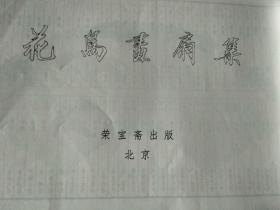 花鸟画扇集
荣宝斋出版
北京